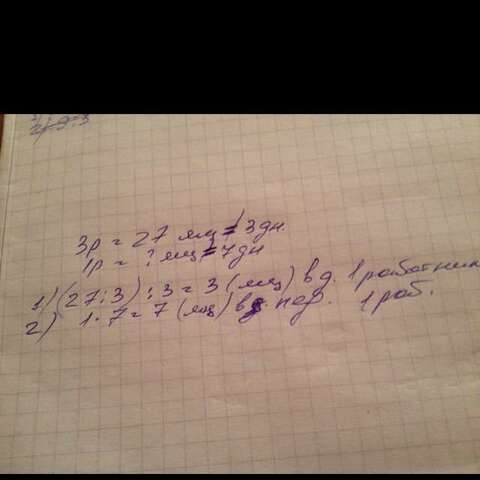 3р = 27 ящ = 3дн.
1р = ? ящ = 7дн
1) (27:3) :3 = 3 (ящ) в д. 1 работник
2) 1·7 = 7 (ящ) в д. пер. 1 раб.